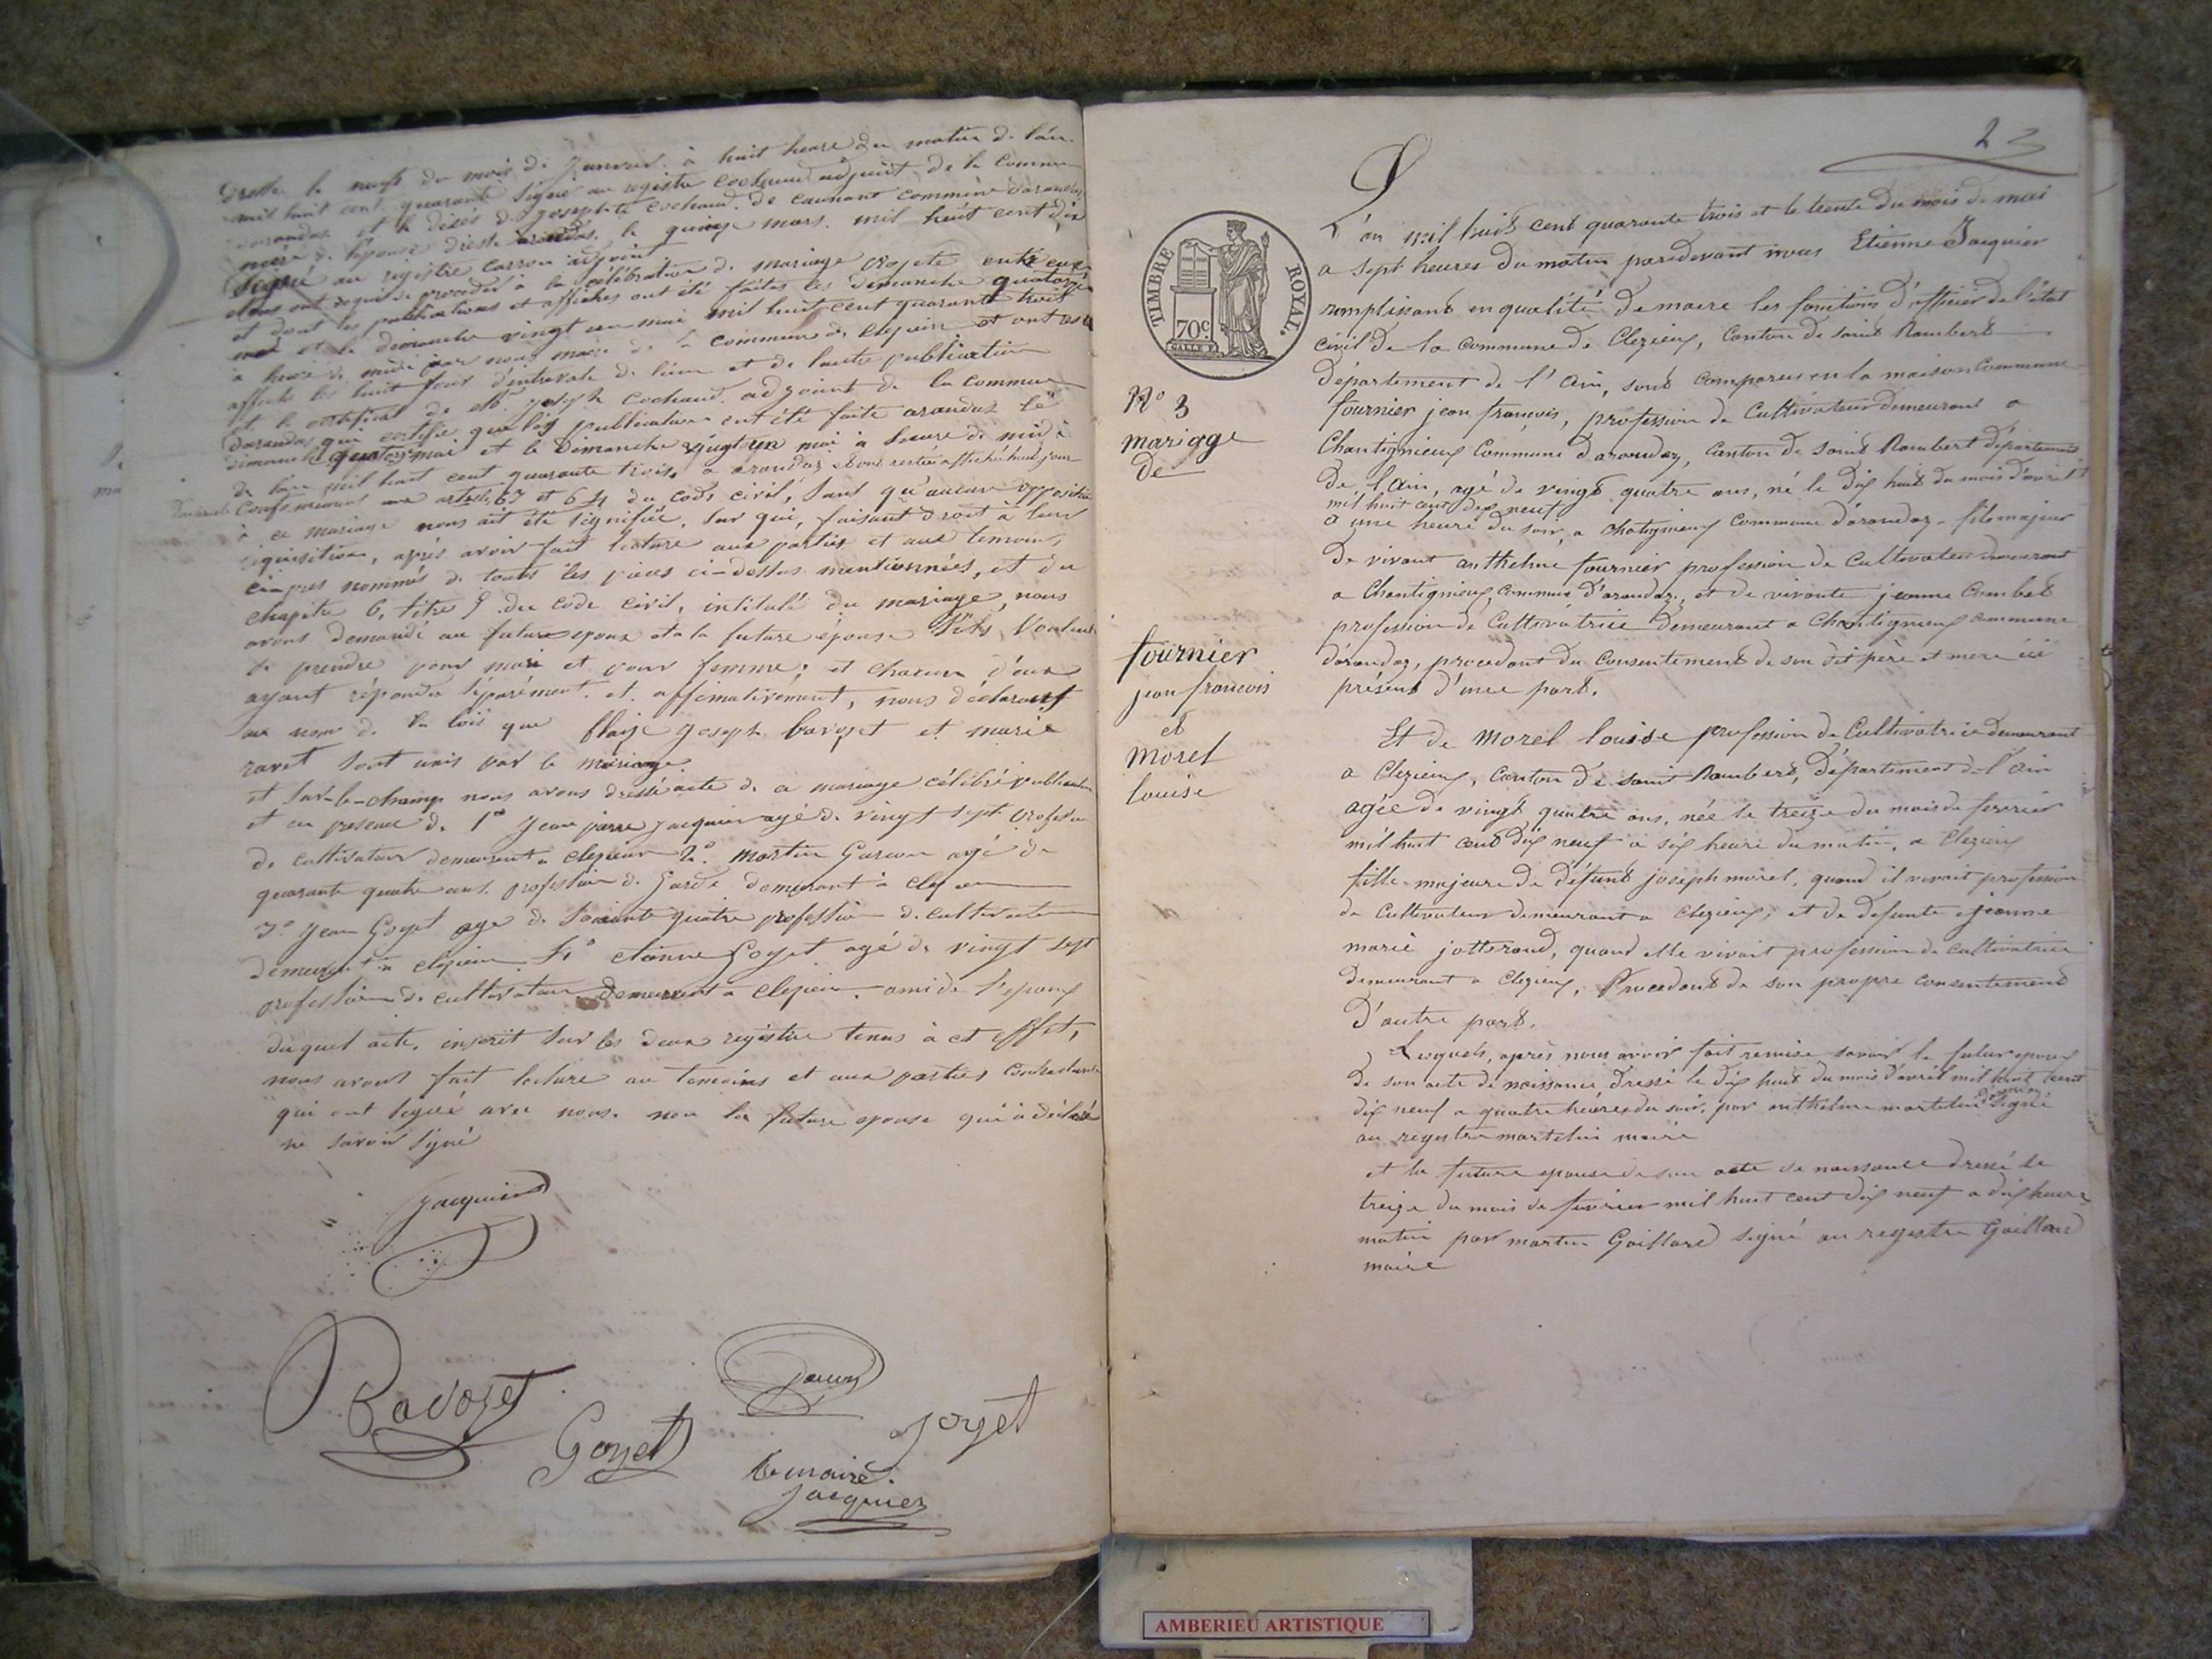 dressé le neuf du mois de Janvier à huit heure du matin de l'an
mil huit cent quarante signé au registre cochaud adjoint de la commune
darandas et le décès de josephte cochaud de commune darandas
mère de l'épouse dressé arandas le quinze mars mil huit cent dix
signé au registre carron adjoint
et nous ont requis de procéder à la célébration de mariage projeté entre eux
et dont les publications et affiches ont été faites les dimanche quatorze
mai et le dimanche vingt un mai mil huit cent quarante trois
à heure de midi par nous maire de la commune de clezieu et ont resté
affiché les huit jour d'intervale de l'une et de l'autre publication
et le certificat de Mr joseph cochaud adjoint de la commune
darandas qui certifie que les publication ont été faite arandas le
dimanche quatorze mai et le Dimanche vingt un mai à heure de midi
de l'an mil huit cent quarante trois a arandas et ont restée affiché huit jour
Conformément aux article 63 et 64 du code civil, sans qu'aucune opposition
à ce mariage nous ait été signifiée, sur qui, faisant droit à leur
réquisition, après avoir fait lecture aux parties et aux temoins,
ci-apres nommés de toutes les pièces ci-dessus mentionnées, et du
chapitre 6, titre 5 du code civil, intitulé du mariage, nous
avons demandé au future epoux et a la future épouse s'ils veulent
se prendre pour mari et pour femme; et chacun d'eux
ayant répondu séparément et affirmativement, nous déclarons
au nom de la loi que joseph bavozet et marie
ravet sont unis par le mariage
et sur-le-champ nous avons dressé acte de ce mariage célébré publiquement
et en presence de 1° jean pierre jacquier agé de vingt sept profession
de cultivateur demeurant a clezieu 2° martin Garcon agé de
quarante quatre ans profession de garde demeurant à clezieu
3° jean Goyet age de soixante quatre profession de cultivateur
demeurant a clezieu 4° etienne Goyet agé de vingt sept
profession de cultivateur demeurant a clezieu amis de l'epoux
duquel acte, inscrit sur les deux registre tenus à cet effet,
nous avons fait lecture au temoins et aux parties contractante
qui ont signé avec nous. non la future epouse qui a déclaré
ne savoir signé
Jacquier
Bavozet
Goyet
goyet
le maire
Jacquier
23
TIMBRE ROYAL.
70c.
L'an mil huit cent quarante trois et le trente du mois de mai
a sept heures du matin pardevant nous Etienne Jacquier
remplissant en qualité de maire les fonctions d'officier de l'état
civil de la commune de Clezieu, Canton de saint Rambert
Département de l'Ain, sont comparus en la maison commune
fournier jean françois, profession de Cultivateur demeurant a
Chantignieux Commune d'arandaz, Canton de saint Rambert département
de l'Ain, agé de vingt quatre ans, né le dix huit du mois d'avril
mil huit cent dix neuf
a une heure du soir, a chatignieux commune d'arandaz - fils majeur
De vivant anthelme fournier profession de cultivateur demeurant
a Chantignieux, commune d'arandaz, et de vivante jeanne Combet
profession de Cultivatrice demeurant a Chantignieux commune
d'arandaz, procedant du consentement de son dit père et mere ici
présent d'une part.
Et de morel louise profession de Cultivatrice demeurant
a Clezieu, canton de saint Rambert, département de l'ain
agée de vingt quatre ans, née le treize du mois de fevrier
mil huit cent dix neuf a six heure du matin, a Clezieu
fille majeure de défunt joseph morel, quand il vivait profession
de Cultivateur demeurant a Clezieu, et de defunte jeanne
marie jotterand, quand elle vivait profession de cultivatrice
demeurant a Clezieu, Procedant de son propre consentement
D'autre part.
Lesquels, après nous avoir fait remise savoir le futur epoux
de son acte de naissance dressé le dix huit du mois d'avril mil huit cent
dix neuf a quatre heures du soir, par anthelme martelin signé
au registre martelin maire
et la future epouse de son acte de naissance dressé le
treize du mois de fevrier mil huit cent dix neuf a dix heure
matin par martin Gaillard signé au registre Gaillard
maire
No 3
mariage
De
fournier
jean francois
et
Morel
louise
AMBERIEU ARTISTIQUE